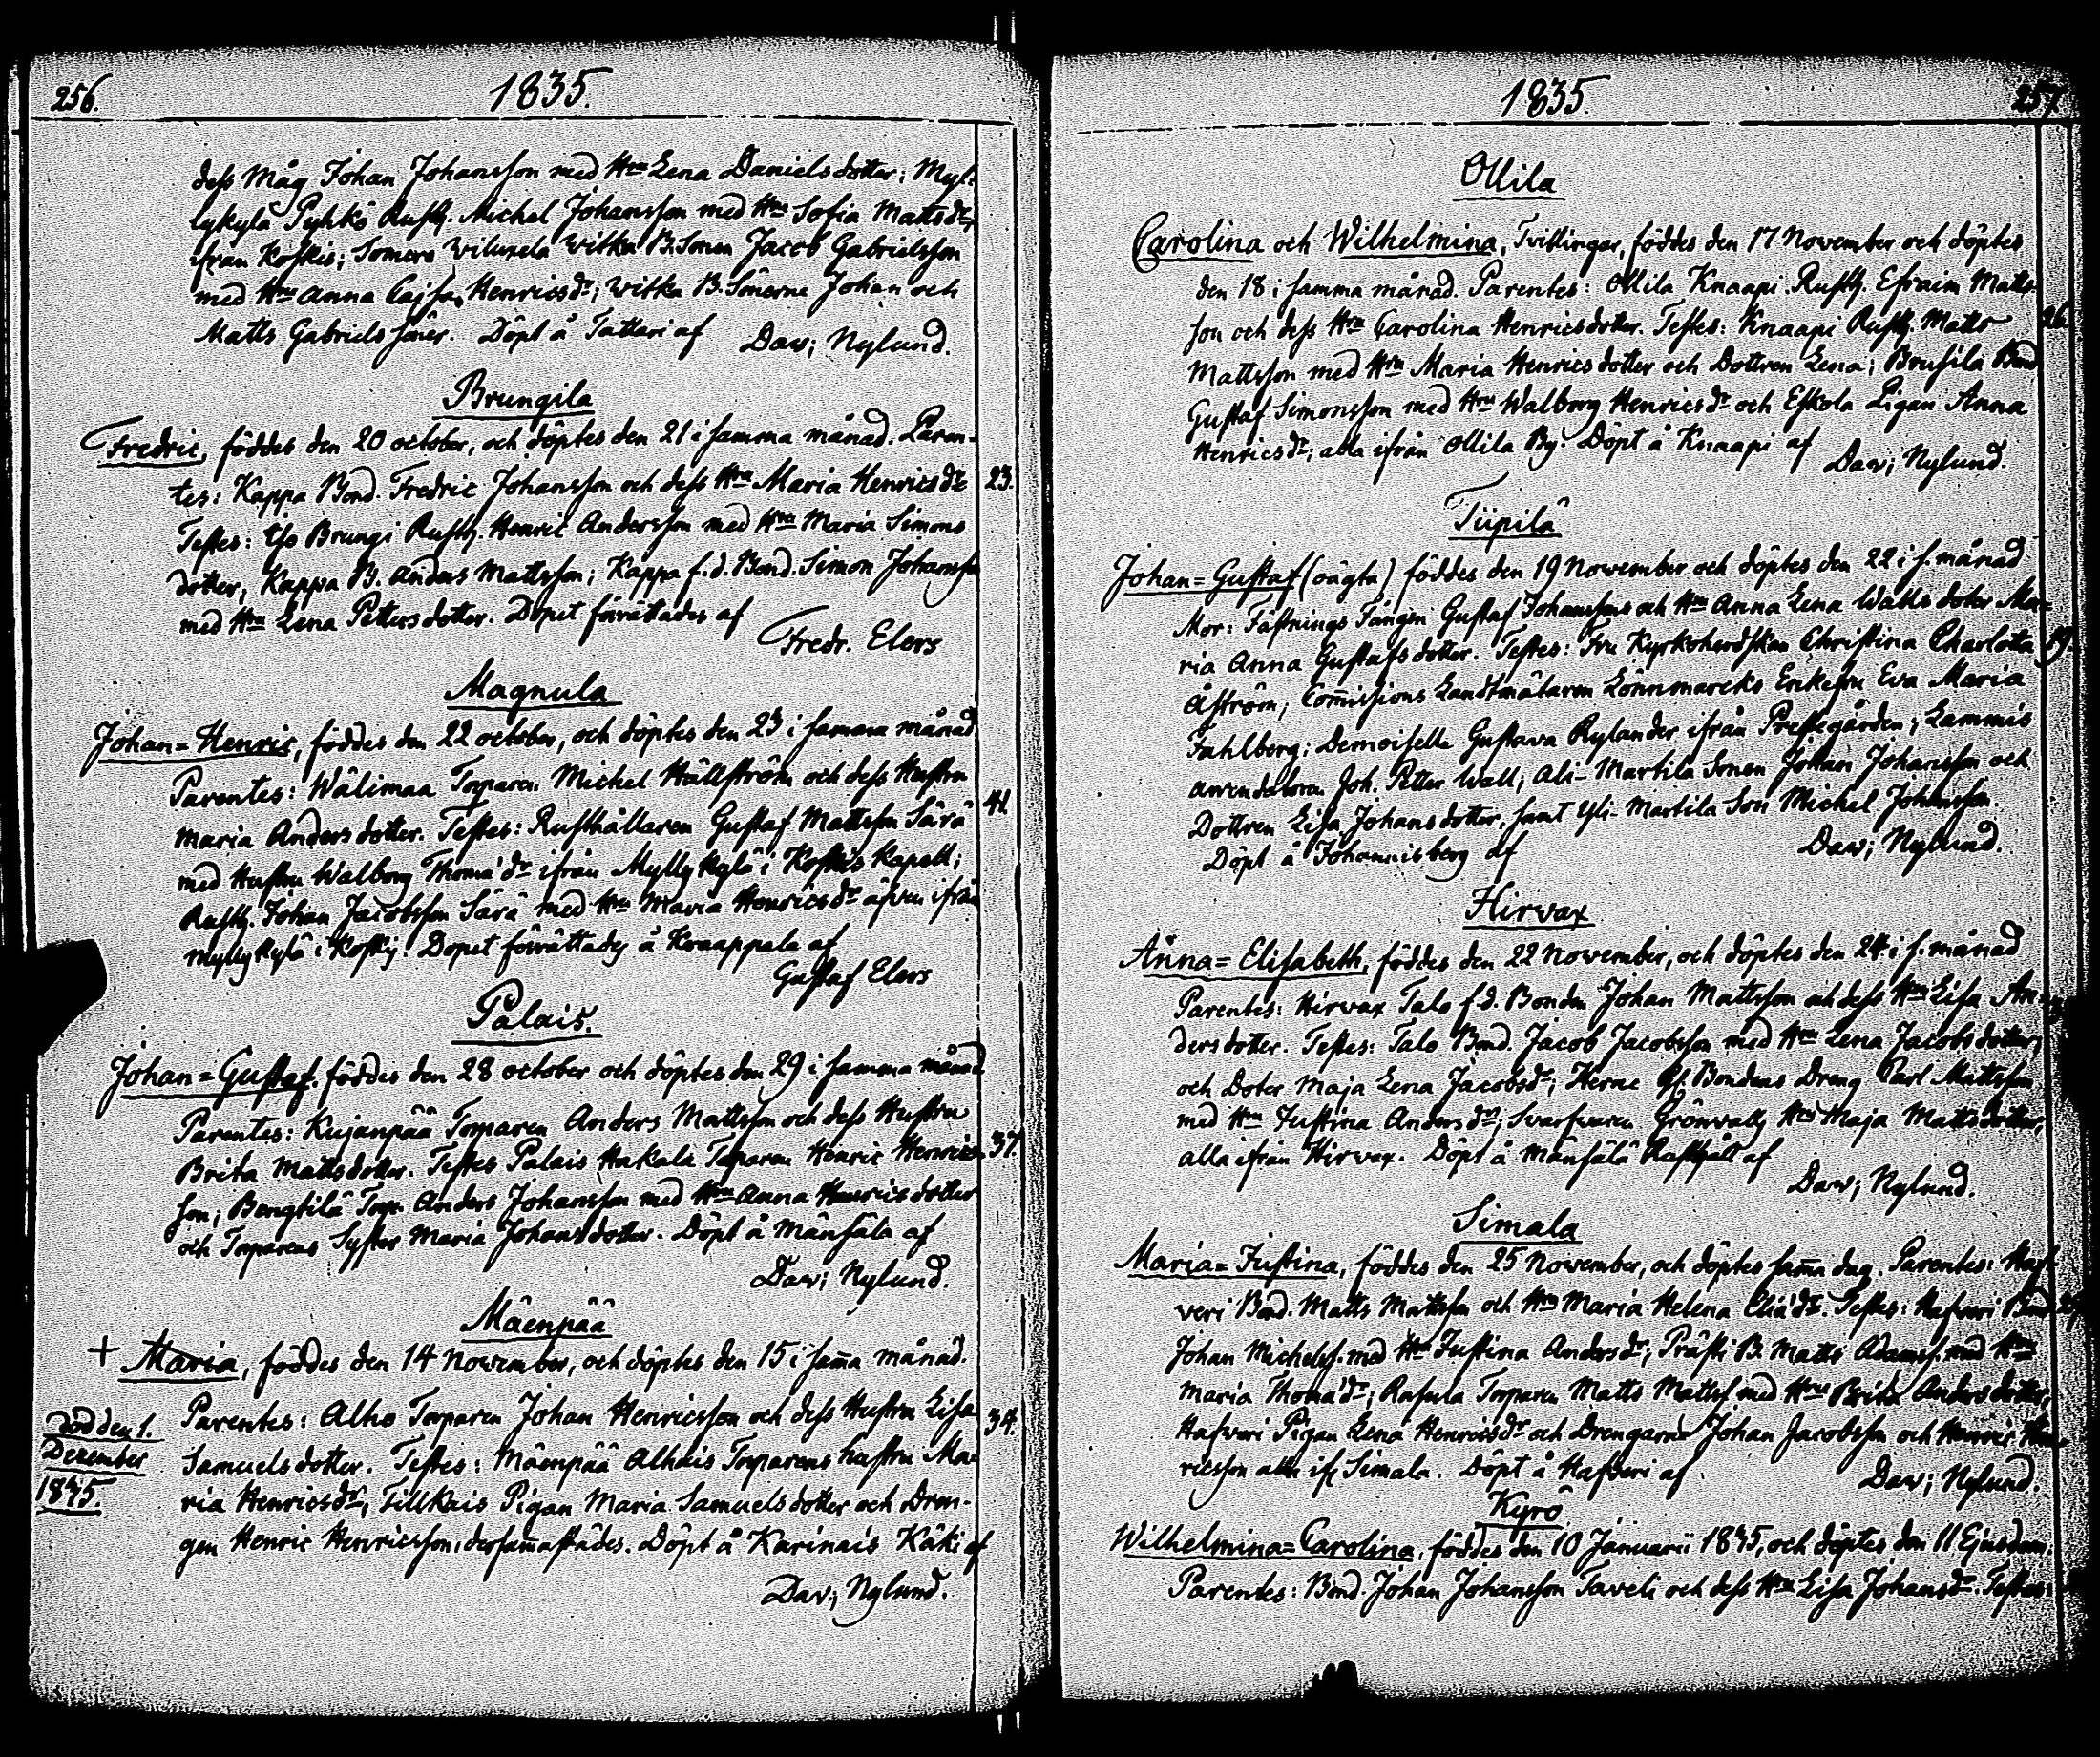 256.
1835.
dess Måg Johan Johansson med Hru Lena Danielsdotter; Myl-
lykylä Pyhkö Rusth. Michel Johansson med Hru Sofia Mattsdr,
ifrån Koskis; Somero Wiluxela Witka B.Sonen Jacob Gabrielsson
med Hru Anna Cajsa Henricsdr; Witka B.Sönerna Johan och
Matts Gabriels söner. Döpt å Tattari af
Dav; Nylund.
Brungila
Fredric, föddes den 20 october, och döptes den 21 i samma månad. Paren-
tes: Kappa Bond. Fredric Johansson och dess Hru Maria Henricsdr
23.
Testes: Brungi Rusth. Henric Andersson med Hru Maria Simons
dotter, Kappa B. Anders Mattsson; Kappa f.d. Bond. Simon Johansson
med Hru Lena Pettersdotter. Dopet förrättades af
Fredr. Elers
Magnula
Johan=Henric, föddes den 22 october, och döptes den 23 i samma månad
Parentes: Wälimaa Torparen Michel Hällström och dess Hustru
41
Maria Andersdotter. Testes: Rusthållaren Gustaf Mattsson Särä
med Hustru Walborg Thoma'dr ifrån Myllykylä i Koskis Kapell;
Rusth. Johan Jacobsson Särä med Hru Maria Henricsdr äfven ifrån
Myllykylä i Koskis. Dopet förrättades å Knaappala af
Gustaf Elers
Palais.
Johan=Gustaf, föddes den 28 october och döptes den 29 i samma månad
Parentes: Kujanpää Torparen Anders Mattsson och dess Hustru
Brita Mattsdotter. Testes Palais Hakala Torparen Henric Henrics-
37.
son; Bengtilä Torp. Anders Johansson med Hru Anna Henricsdotter
och Torparens Syster Maria Johansdotter. Döpt å Mänsälä af
Dav; Nylund.
Mäenpää
+ Maria, föddes den 14 November, och döptes den 15 i sama månad.
Parentes: Alho Torparen Johan Henricsson och dess Hustru Lisa
34.
död den 1.
December
1835.
Samuelsdotter. Testes: Mäenpää Alhais Torparens hustru Ma-
ria Henricsdr, Tillkais Pigan Maria Samuelsdotter och Dren-
gen Henric Henricsson, dersamastädes. Döpt å Karinais Käki af
Dav; Nylund.
257.
1835.
Ollila
Carolina och Wilhelmina, Tvillingar, föddes den 17 November och döptes
den 18 i samma månad. Parentes: Ollila Knaapi Rusth. Efraim Matts-
son och dess Hru Carolina Henricsdotter. Testes: Knaapi Rusth. Matts
26.
Mattsson med Hru Maria Henricsdotter och Dottren Lena; Brusila Bond
Gustaf Simonsson med Hru Walborg Henricsdr och Eskola Pigan Anna
Henricsdr; alla ifrån Ollila By. Döpt å Knaapi af
Dav; Nylund.
Tiipilä
Johan=Gustaf (oägta) föddes den 19 November och döptes den 22 i s. månad
Mor: Fästnings Fången Gustaf Johanssons och Hru Anna Lena Wallsdoter Ma-
ria Anna Gustafsdotter. Testes: Fru Kyrkoherdskan Christina Charlotta
Åström; Commissions Landtmätaren Lönnmarcks Enkefru Eva Maria
Fahlberg; Demoiselle Gustava Rylander ifrån Prestegården; Lammis
arrendatoren Joh. Petter Wall; Ali-Martila Sonen Johan Johansson och
Dottren Lisa Johansdotter, samt Yli-Martila Son Michel Johansson.
Döpt å Johannisberg af
Dav; Nylund.
Hirvax
Anna=Elisabeth, föddes den 22 November, och döptes den 24 i s. månad
Parentes: Hirvax Talo f.d. Bonden Johan Mattsson och dess Hru Lisa An-
dersdotter. Testes: Talo Bond. Jacob Jacobsson med Hru Lena Jacobsdotter,
och Doter Maja Lena Jacobsdr; Herne Bondens Dreng Carl Mattsson
med Hru Justina Andersdr; Svarfvaren Grönvalls Hru Maja Mattsdotter,
alla ifrån Hirvax. Döpt å Mänsälä Rusthåll af
Dav; Nylund.
Simala
Maria=Justina, föddes den 25 November, och döptes sama dag. Parentes: Haf-
veri Bond. Matts Mattsson och Hru Maria Helena Elia'dr. Testes: Hafveri Bond
Johan Michelss. med Hru Justina Andersdr; Prästi B. Matts Adamss. med Hru
Maria Thoma'dr; Rasula Torparen Matts Mattss med Hru Brita Andersdotter,
Hafveri Pigan Lena Henricsdr och Drengarne Johan Jacobsson och Henric Hen-
ricsson alla ifr Simala. Döpt å Hafveri af
Dav; Nylund.
Kyrö
Wilhelmina=Carolina, föddes den 10 Januarii 1835, och döptes den 11 Ejusdem,
Parentes: Bond. Johan Johansson Taveli och dess Hru Lisa Johansdr. Testes: